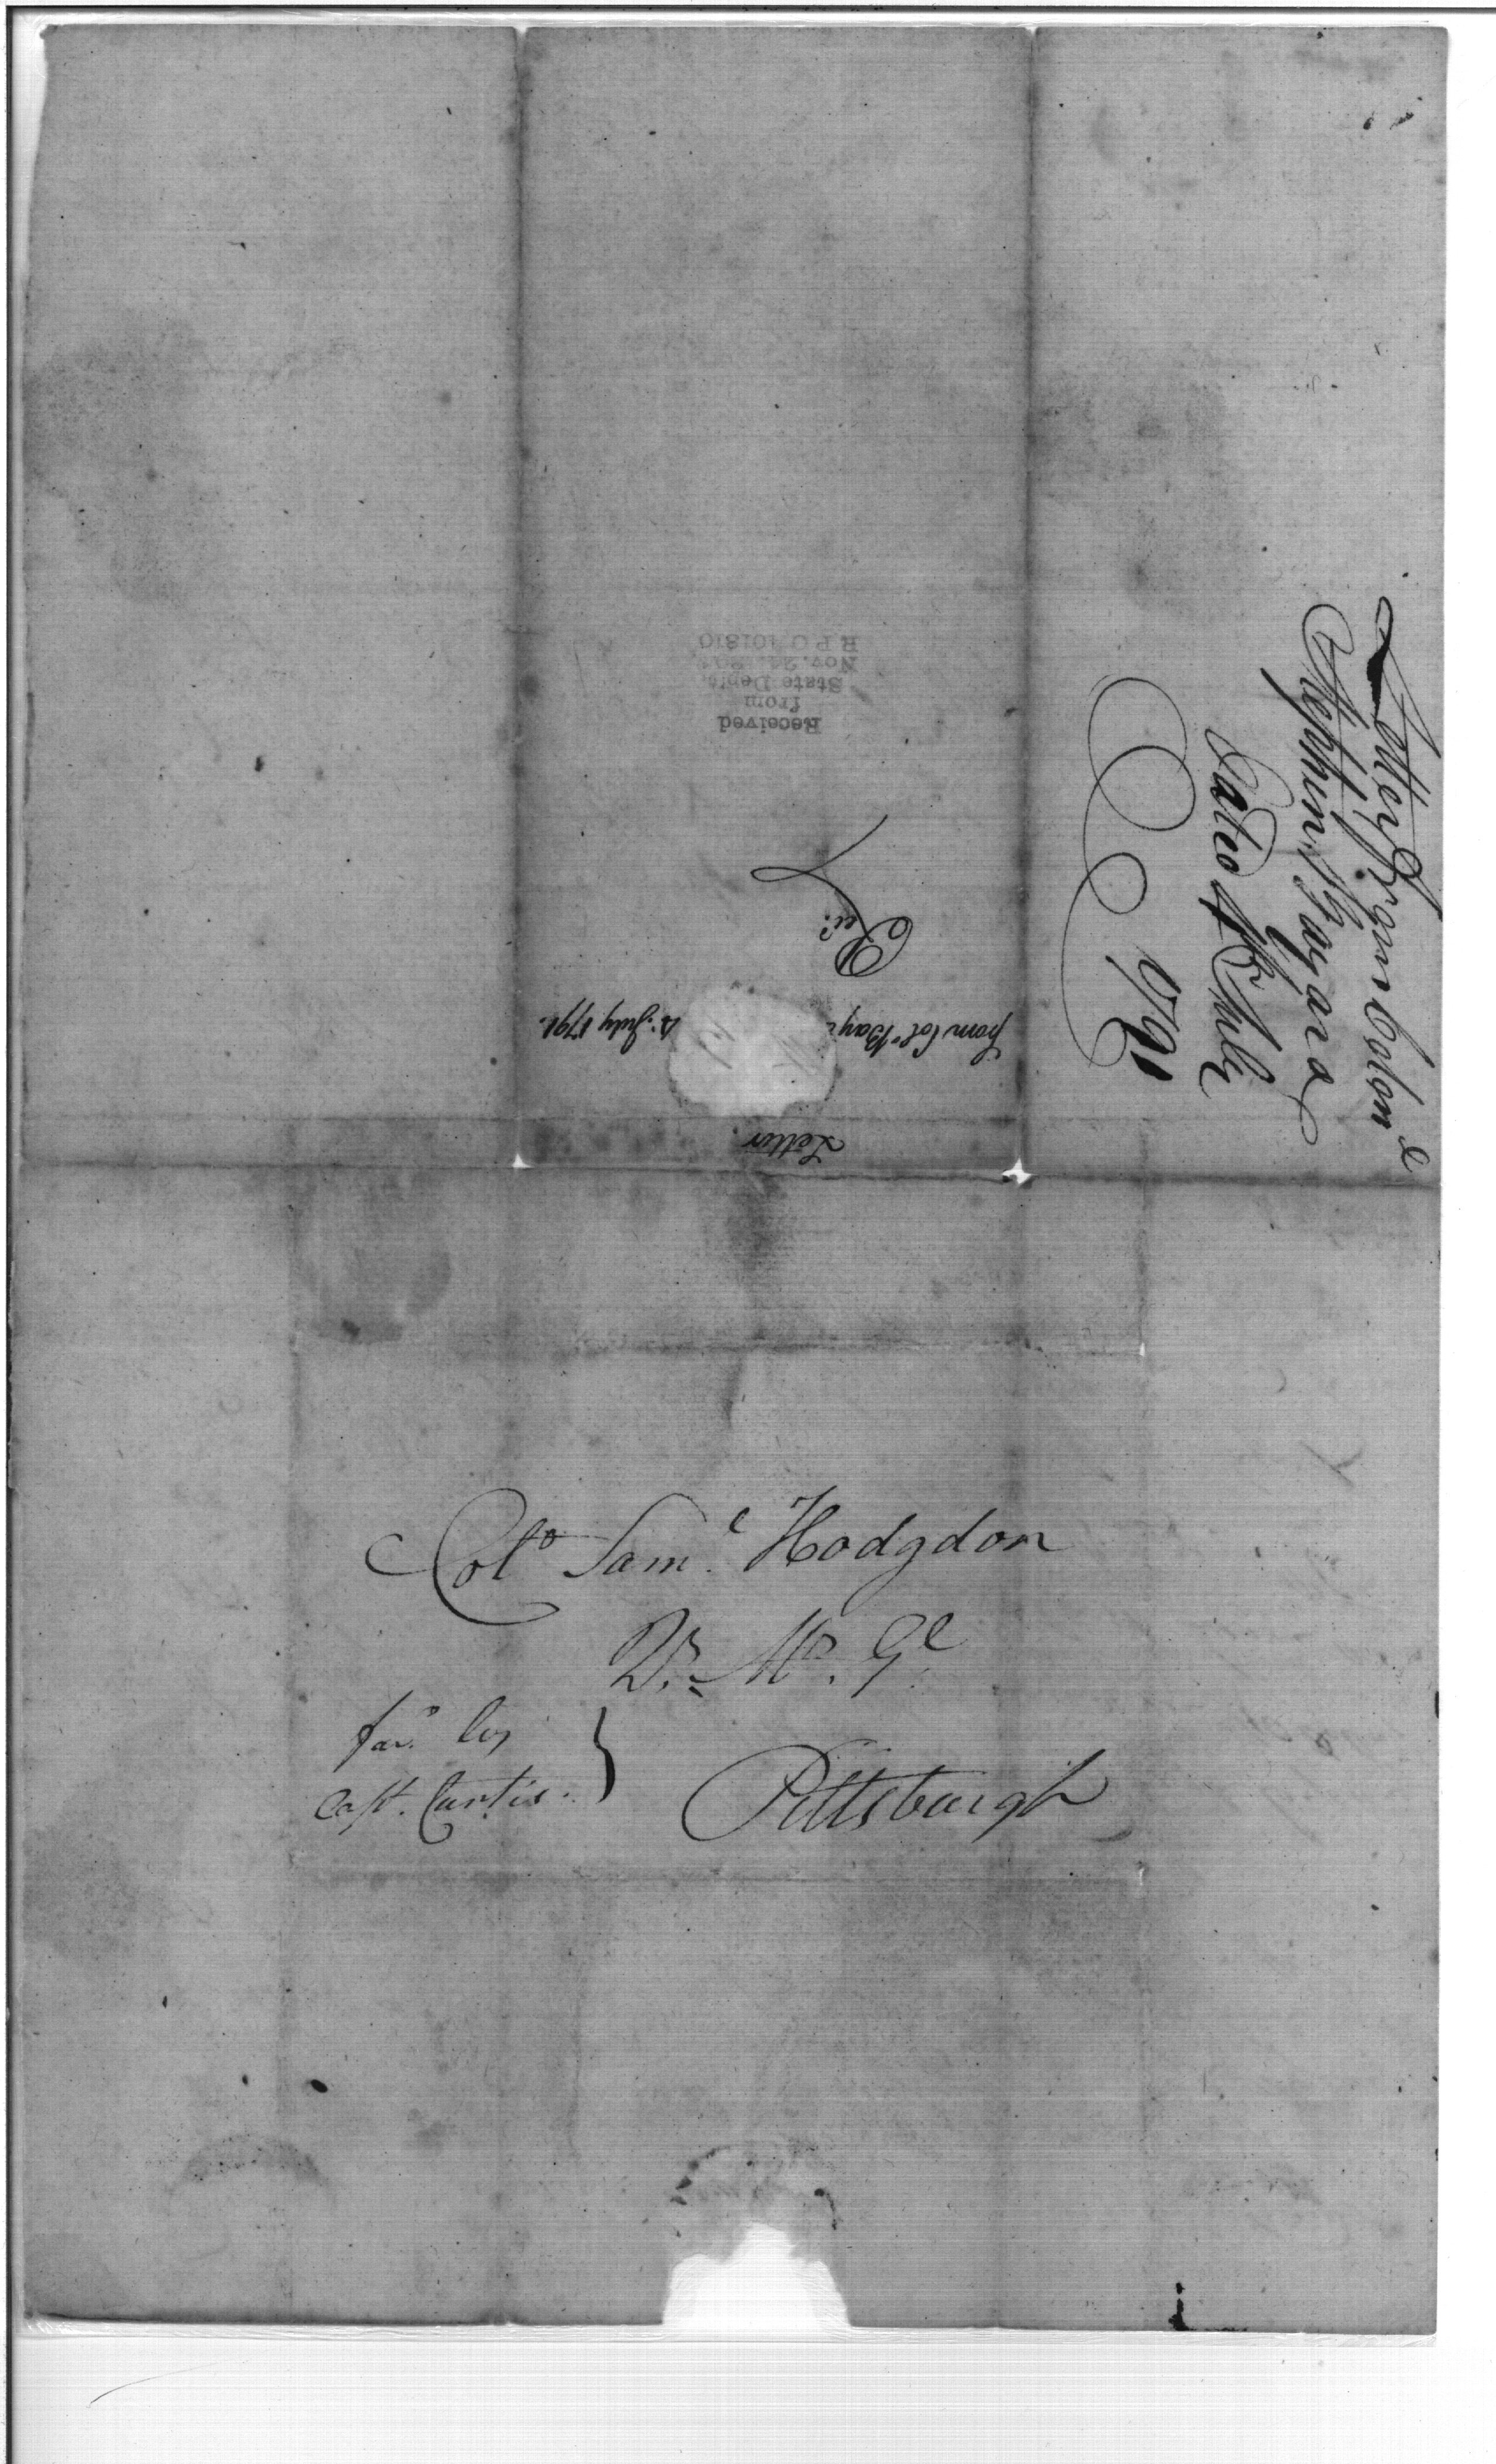 Letter from Colon^l
Stephen Bayard
Dated 4th July
1791
Received
from
State Dept.
Nov. 24, 190
R P O 401810
Rec^d
Letter.
from Col^o Bay
4^h July 1791.
Col^o Sam^l Hodgdon
Q^r M^r G^l
Pittsburgh
fav^d by
Capt. Curtis.